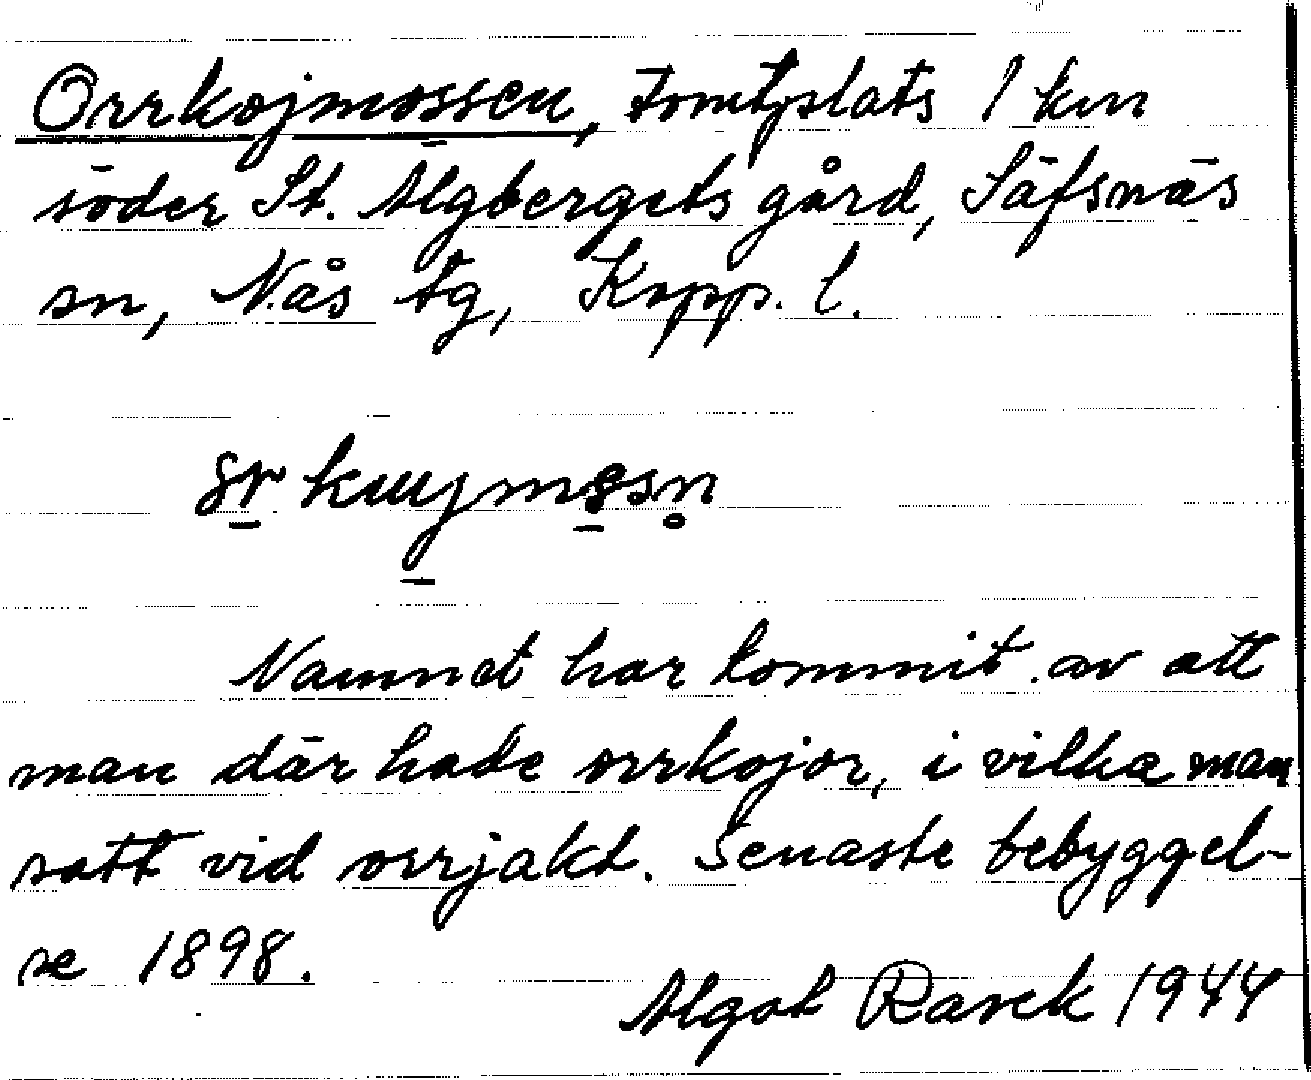 Orrkojmossen, tomtplats 1 km
söder St. Älgbergets gård, Säfsnäs
sn, Nås tg, Kopp. l.
Namnet har kommit av att
man där hade orrkojor, i vilka man
satt vid orrjakt. Senaste bebyggel-
se 1898.
Algot Rask 1944